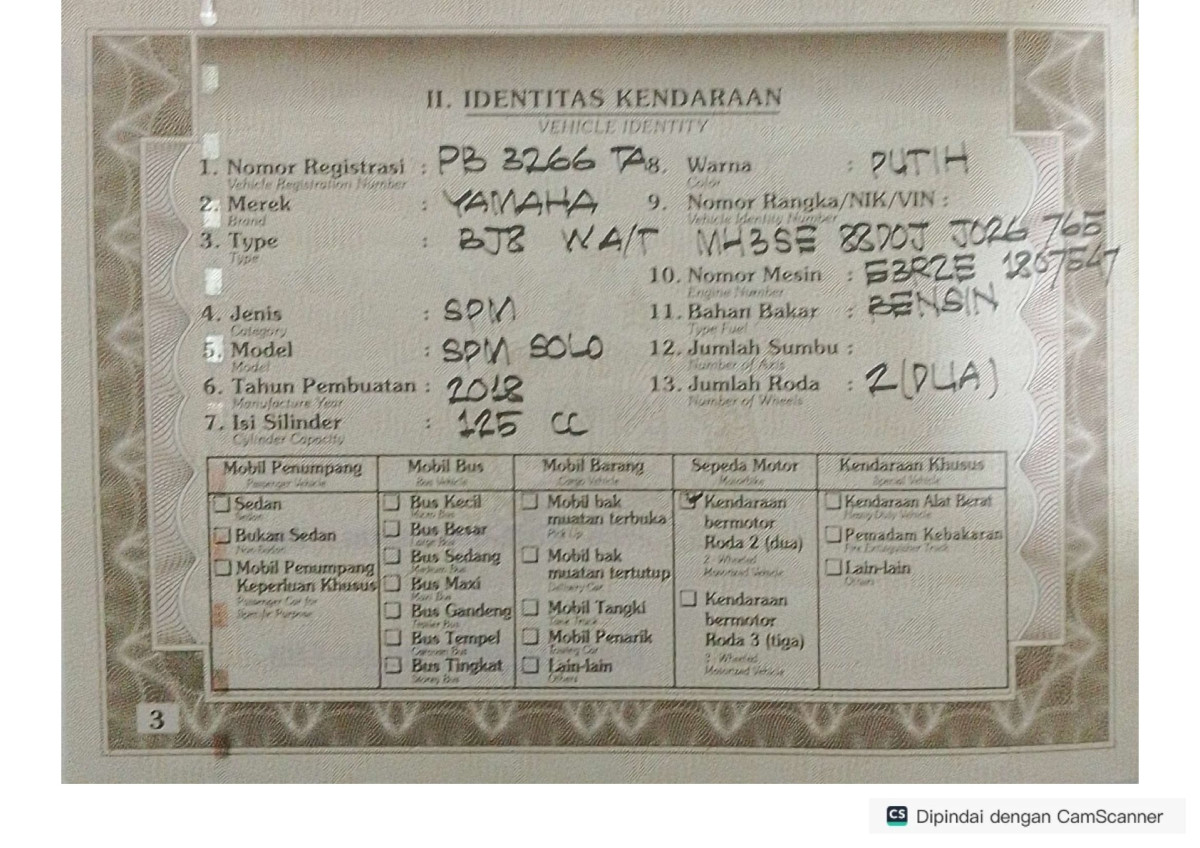 II. IDENTITAS KENDARAAN
VEHICLE IDENTITY
1. Nomor Registrasi : PB 3266 TA
Vehicle Registration Number
2. Merek : YAMAHA
Brand
3. Type : BJ8 WA/T
Type
4. Jenis : SPM
Category
5. Model : SPM SOLO
Model
6. Tahun Pembuatan : 2018
Manufacture Year
7. Isi Silinder : 125 CC
Cylinder Capacity
8. Warna : PUTIH
Color
9. Nomor Rangka/NIK/VIN :
Vehicle Identity Number
MH3SE 88D0J J026 765
10. Nomor Mesin : E3R2E 1867547
Engine Number
11. Bahan Bakar : BENSIN
Type Fuel
12. Jumlah Sumbu :
Number of Axis
13. Jumlah Roda : 2 (DUA)
Number of Wheels
Mobil Penumpang
Passenger Vehicle
Sedan
Sedan
Bukan Sedan
Non Sedan
Mobil Penumpang
Keperluan Khusus
Passenger Car for
Specific Purpose
Mobil Bus
Bus Vehicle
Bus Kecil
Micro Bus
Bus Besar
Large Bus
Bus Sedang
Medium Bus
Bus Maxi
Maxi Bus
Bus Gandeng
Bus Tempel
Caravan Bus
Bus Tingkat
Storey Bus
Mobil Barang
Cargo Vehicle
Mobil bak
muatan terbuka
Pick Up
Mobil bak
muatan tertutup
Delivery Car
Mobil Tangki
Tank Truck
Mobil Penarik
Towing Car
Lain-lain
Others
Sepeda Motor
Motorbike
Kendaraan
bermotor
Roda 2 (dua)
2 - Wheeled
Motorized Vehicle
Kendaraan
bermotor
Roda 3 (tiga)
3 - Wheeled
Motorized Vehicle
Kendaraan Khusus
Special Vehicle
Kendaraan Alat Berat
Heavy Duty Vehicle
Pemadam Kebakaran
Fire Extinguisher Truck
Lain-lain
Others
3
CS Dipindai dengan CamScanner